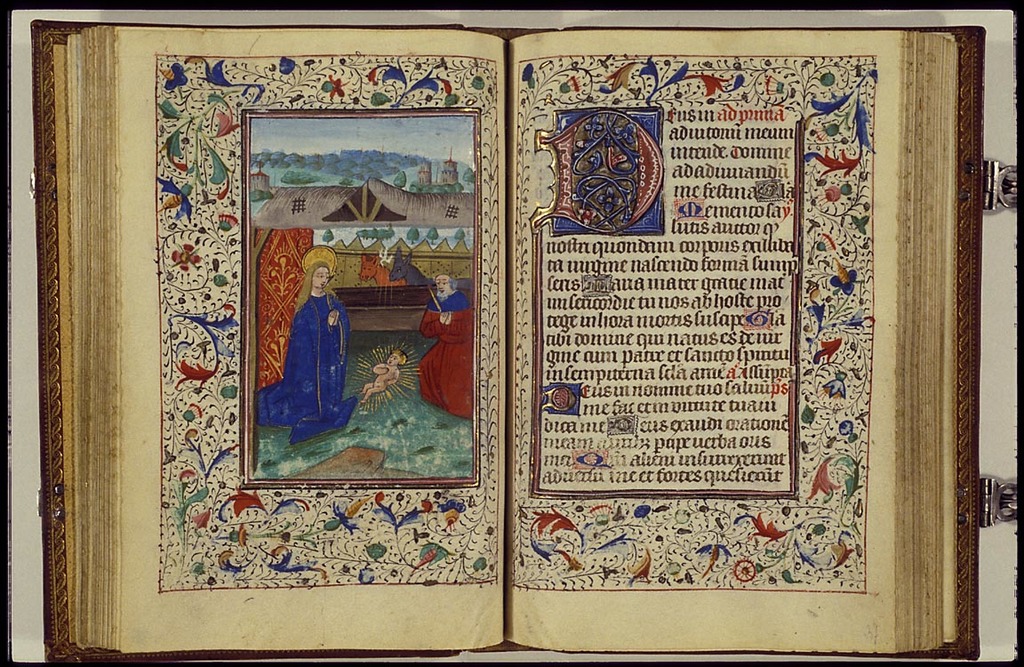 Deus in ad primā
adiutoriū meum
intende Domine
ad adiuuandū
me festina Gla
Memento sa
lutis auctor q
nostri quondam corporis ex iliba
ta uirgine nascendo formā sump
seris Maria mater gratie mat
misericordie tu nos ab hoste pro
tege in hora mortis suscipe Gla
tibi domine qui natus es de uir
gine cum patre et sancto spiritu
in sempiterna scla amē a Assūpta
Deus in nomine tuo saluū ps
me fac et in uirtute tua iu
dica me Deus exaudi oratione
meam auribz pcipe uerba oris
mei Qm alieni insurrexerunt
aduersū me et fortes quesierūt